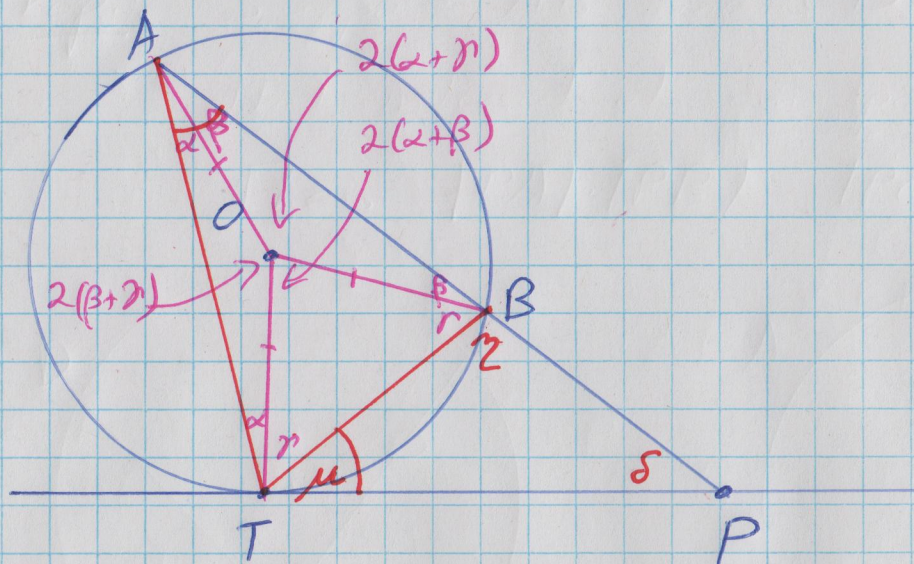 A
2(α+γ)
α
β
2(α+β)
O
2(β+γ)
β
γ
B
η
α
γ
μ
δ
T
P